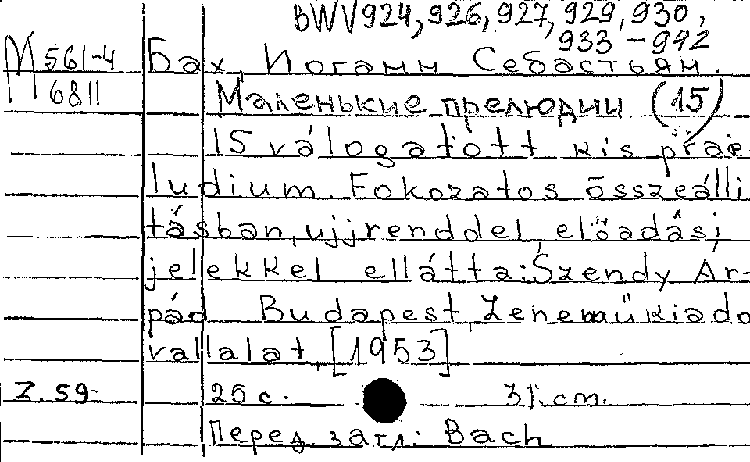 BWV 924, 926, 927, 929, 930,
933-942
М 561-4 Бах, Иоганн Себастьян.
П 6811 Маленькие прелюдии (15)
15 válogatott kis prae-
ludium. Fokozatos összeálli
tásban, ujjrenddel, előadási
jelekkel ellátta: Szendy Ar-
pád. Budapest, Zeneműkiado
vallalat, [1953]
Z. 59. 25 с. 31 cm.
Перед загл.: Bach